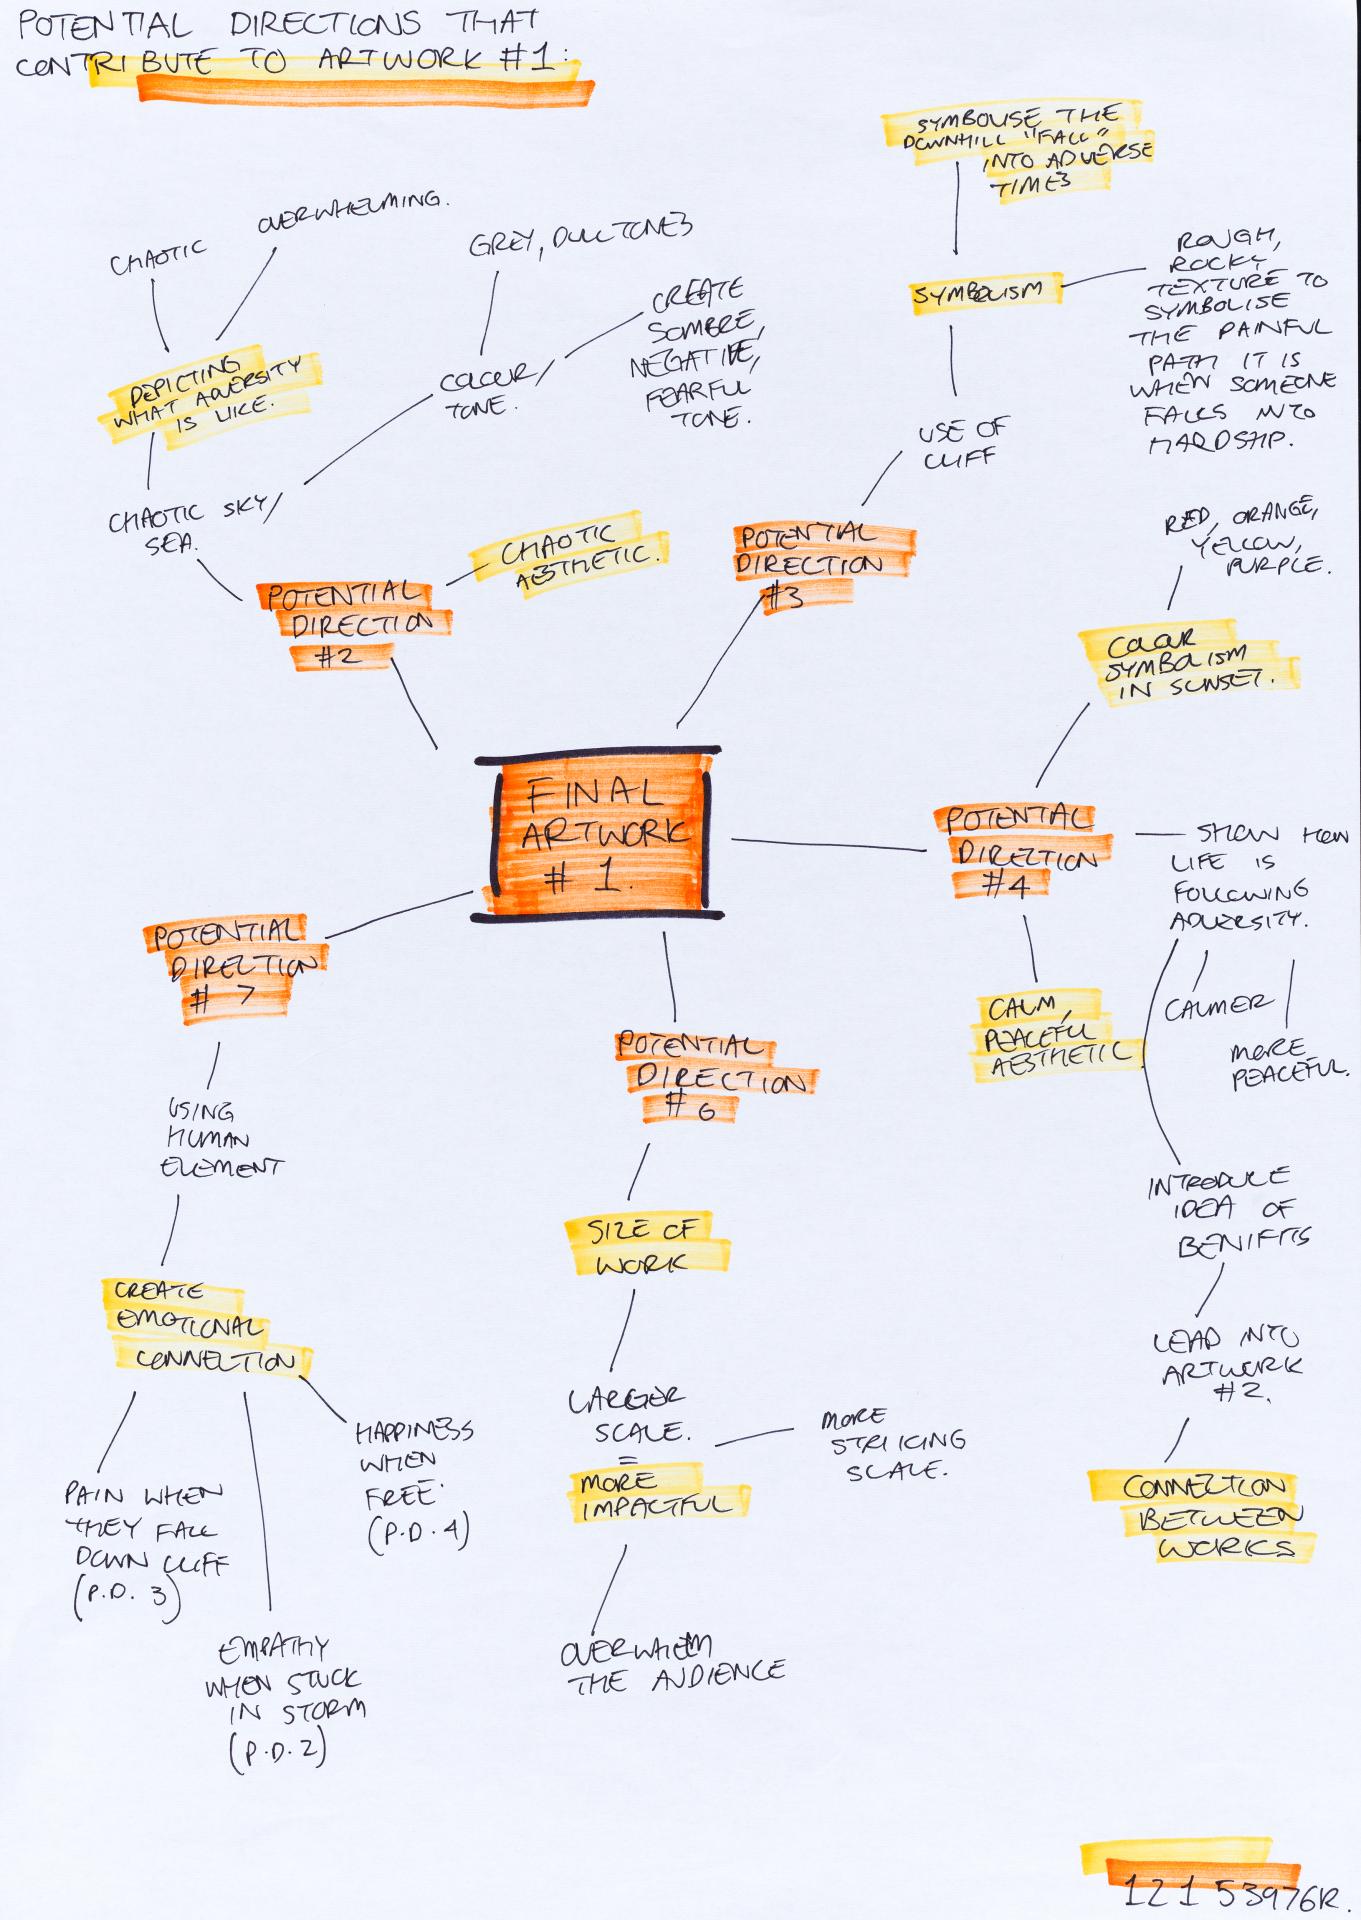 POTENTIAL DIRECTIONS THAT
CONTRIBUTE TO ARTWORK #1:
SYMBOLISE THE
DOWNHILL "FALL"
INTO ADVERSE
TIMES
CHAOTIC
OVERWHELMING.
GREY, DULL TONES
CREATE
SOMBRE,
NEGATIVE,
FEARFUL
TONE.
SYMBOLISM
ROUGH,
ROCKY
TEXTURE TO
SYMBOLISE
THE PAINFUL
PATH IT IS
WHEN SOMEONE
FALLS INTO
HARDSHIP.
DEPICTING
WHAT ADVERSITY
IS LIKE.
COLOUR/
TONE.
USE OF
CLIFF
CHAOTIC SKY/
SEA.
CHAOTIC
AESTHETIC.
POTENTIAL
DIRECTION
#2
POTENTIAL
DIRECTION
#3
RED, ORANGE,
YELLOW,
PURPLE.
COLOUR
SYMBOLISM
IN SUNSET.
FINAL
ARTWORK
# 1.
POTENTIAL
DIRECTION
#4
SHOW HOW
LIFE IS
FOLLOWING
ADVERSITY.
CALM,
PEACEFUL
AESTHETIC
CALMER
MORE
PEACEFUL.
INTRODUCE
IDEA OF
BENIFITS
LEAD INTO
ARTWORK
#2.
CONNECTION
BETWEEN
WORKS
POTENTIAL
DIRECTION
# 7
USING
HUMAN
ELEMENT
CREATE
EMOTIONAL
CONNECTION
PAIN WHEN
THEY FALL
DOWN CLIFF
(P.D. 3)
EMPATHY
WHEN STUCK
IN STORM
(P.D. 2)
HAPPINESS
WHEN
FREE.
(P.D. 4)
POTENTIAL
DIRECTION
# 6
SIZE OF
WORK
LARGER
SCALE.
=
MORE
IMPACTFUL
MORE
STRIKING
SCALE.
OVERWHELM
THE AUDIENCE
12153976R.